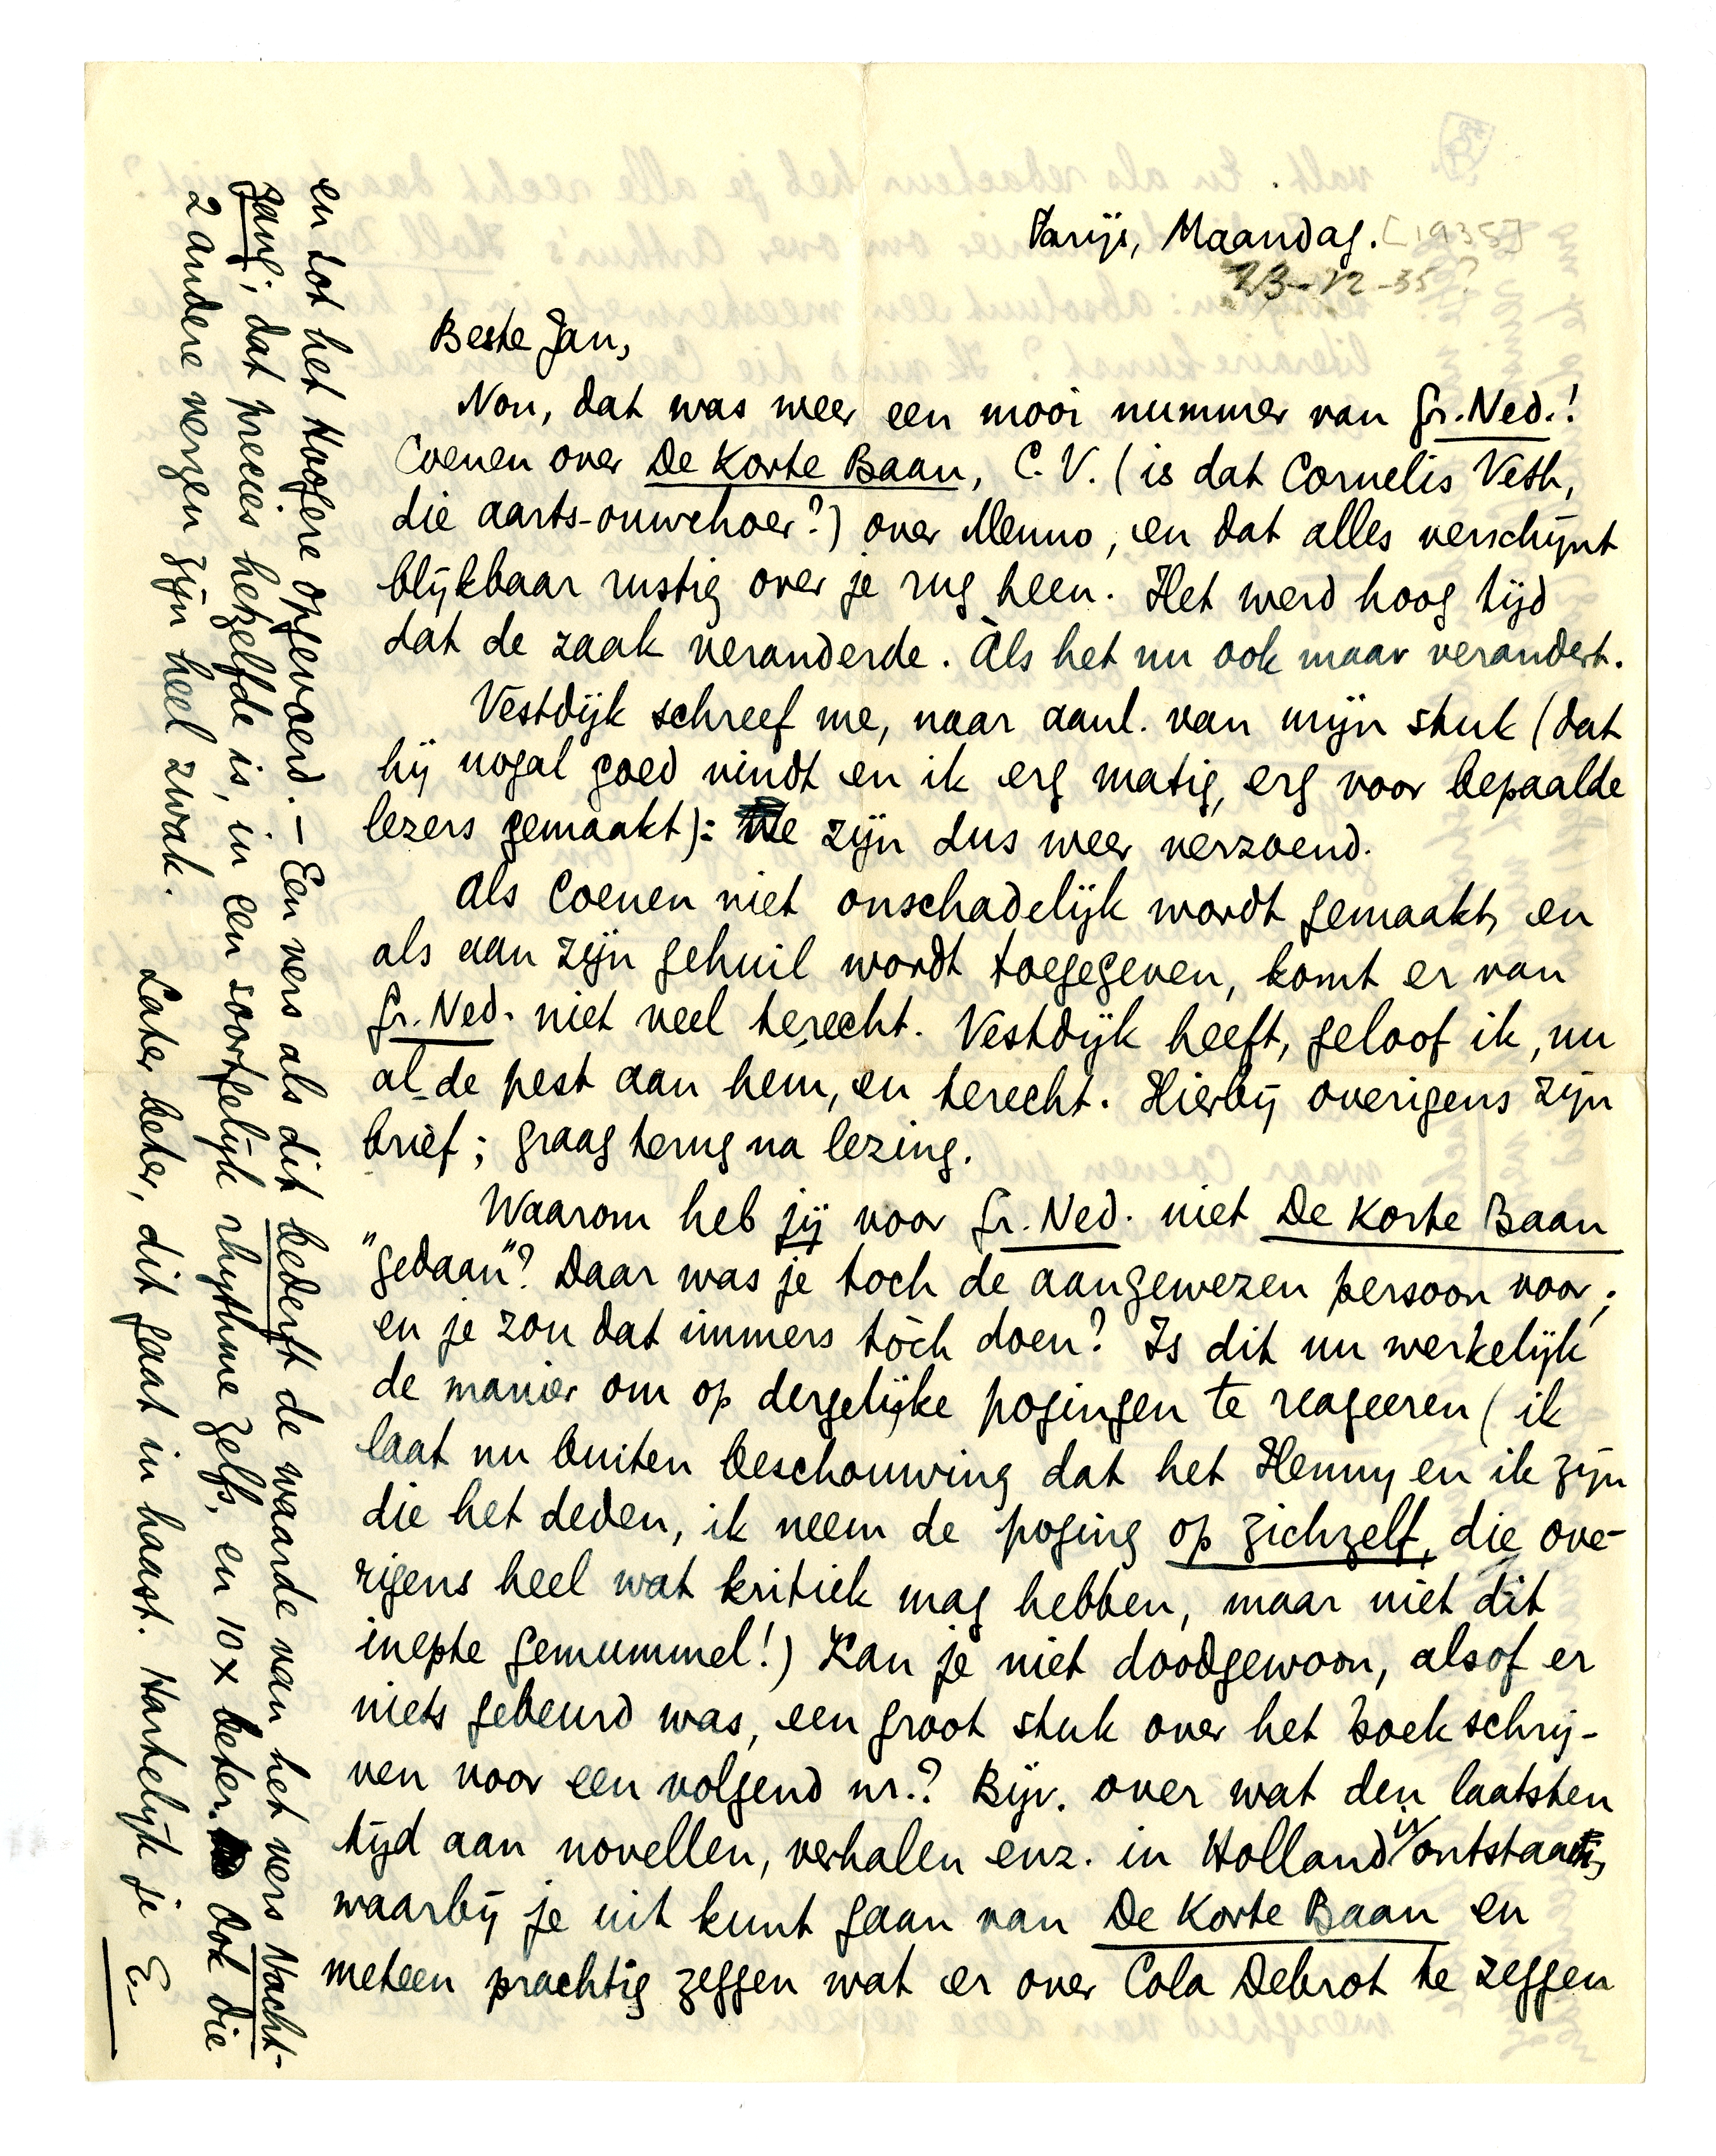 Parijs, Maandag. [1935]
23-12-35?
Beste Jan,
Nou, dat was weer een mooi nummer van Gr. Ned.!
Coenen over De Korte Baan, C.V. (is dat Cornelis Veth,
die aarts-ouwehoer?) over Menno, en dat alles verschijnt
blijkbaar rustig over je rug heen. Het werd hoog tijd
dat de zaak veranderde. Àls het nu ook maar verandert.
Vestdijk schreef me, naar aanl. van mijn stuk (dat
hij nogal goed vindt en ik erg matig, erg voor bepaalde
lezers gemaakt): We zijn dus weer verzoend.
Als Coenen niet onschadelijk wordt gemaakt, en
als aan zijn gehuil wordt toegegeven, komt er van
Gr. Ned. niet veel terecht. Vestdijk heeft, geloof ik, nu
al de pest aan hem, en terecht. Hierbij overigens zijn
brief; graag terug na lezing.
Waarom heb jij voor Gr. Ned. niet De Korte Baan
"gedaan"? Daar was je toch de aangewezen persoon voor;
en je zou dat immers tòch doen? Is dit nu werkelijk
de manier om op dergelijke pogingen te reageeren (ik
laat nu buiten beschouwing dat het Henny en ik zijn
die het deden, ik neem de poging op zichzelf, die ove-
rigens heel wat kritiek mag hebben, maar niet dit
inepte gemummel!) Kan je niet doodgewoon, alsof er
niets gebeurd was, een groot stuk over het boek schrij-
ven voor een volgend nr.? Bijv. over wat den laatsten
tijd aan novellen, verhalen enz. in Holland is ontstaan,
waarbij je uit kunt gaan van De Korte Baan en
meteen prachtig zeggen wat er over Cola Debrot te zeggen
en tot het Hoogere opgevoerd. — Een vers als dit bederft de waarde van het vers Nacht-
zang; dat precies hetzelfde is, in een soortgelijk rhythme zelfs, en 10 x beter. Ook die
2 andere verzen zijn heel zwak.
Later beter, dit gaat in haast. Hartelijk je E.